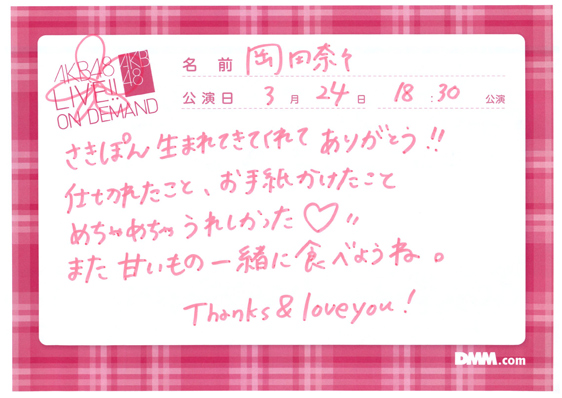 AKB48
LIVE!!
ON DEMAND
AKB
48
名前 岡田奈々
公演日 3月24日 18:30公演
さきぽん生まれてきてくれてありがとう!!
仕切れたこと、お手紙かけたこと
めちゃめちゃうれしかった♡!!
また甘いもの一緒に食べようね。
Thanks & love you!
DMM.com